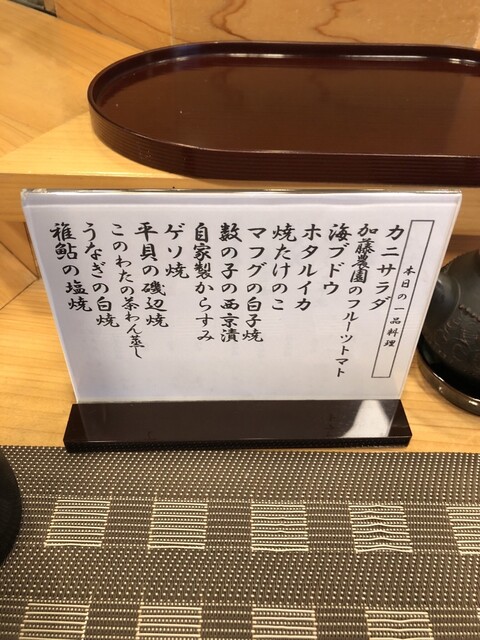 本日の一品料理
カニサラダ
加藤農園のフルーツトマト
海ブドウ
ホタルイカ
焼たけのこ
マフグの白子焼
数の子の西京漬
自家製からすみ
ゲソ焼
平貝の磯辺焼
このわたの茶わん蒸し
うなぎの白焼
稚鮎の塩焼